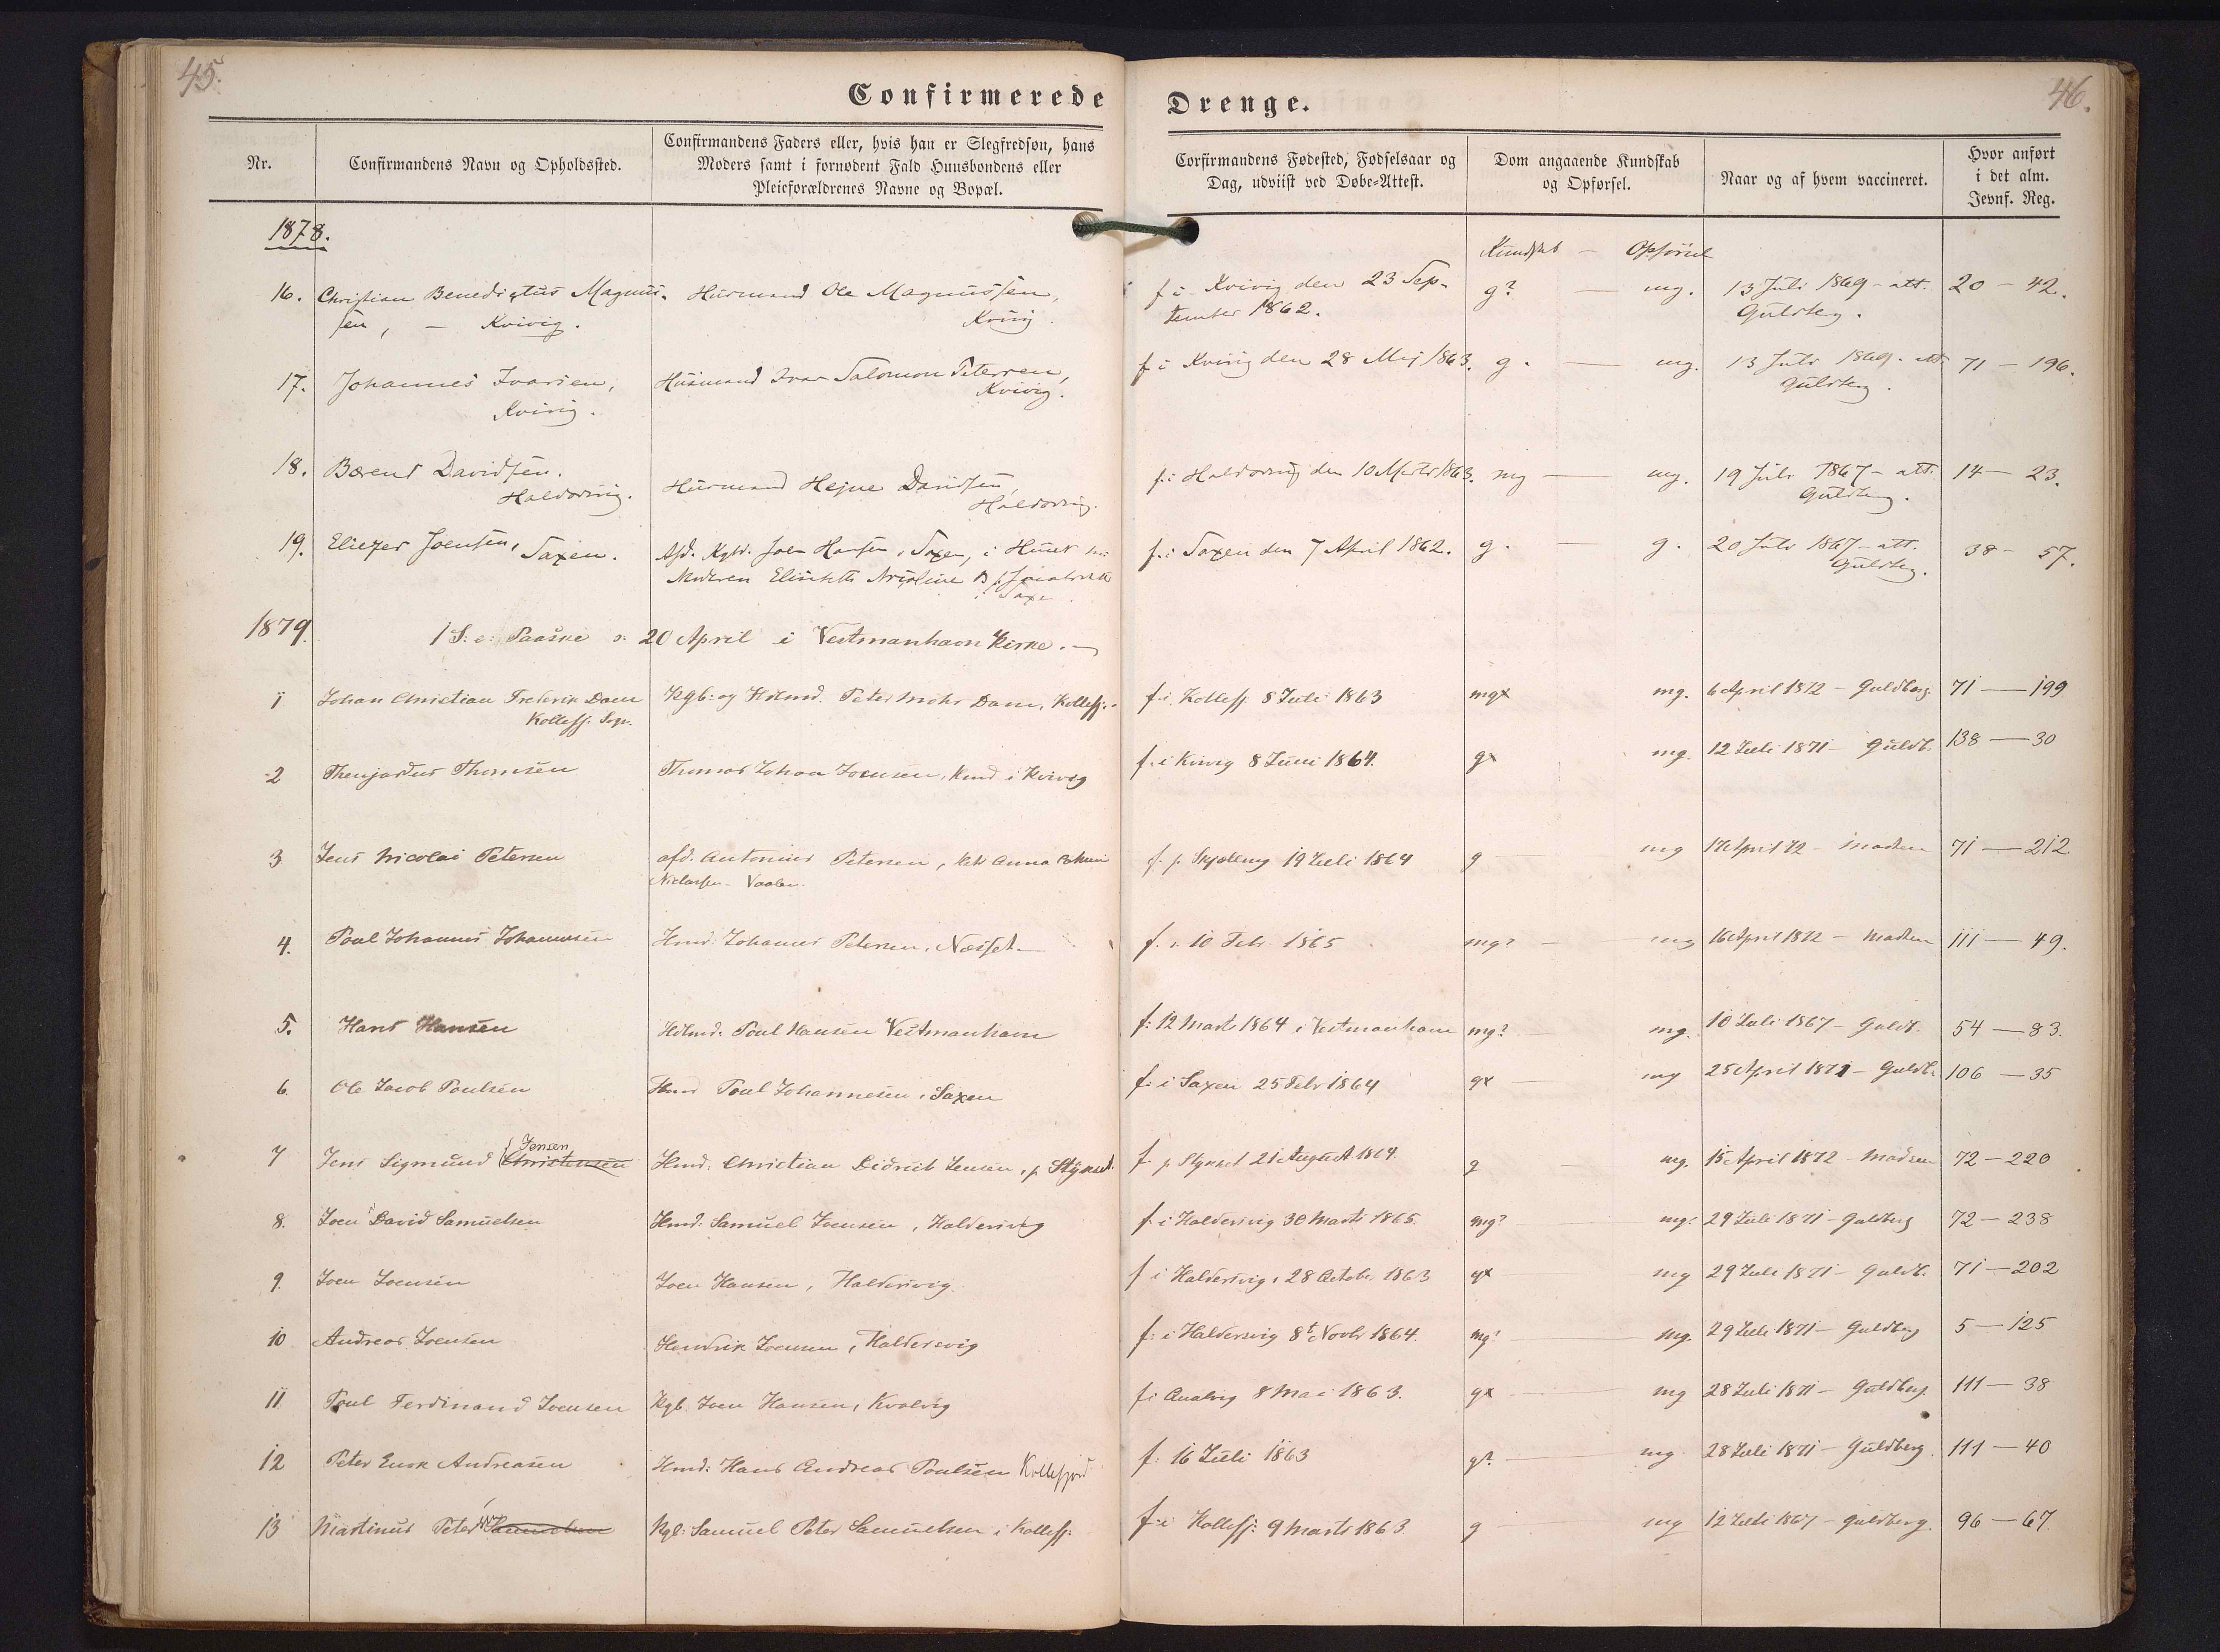 45.
46.
Confirmerede
Drenge.
Nr.
Confirmandens Navn og Opholdssted.
Confirmandens Faders eller, hvis han er Slegfredsøn, hans
Moders samt i fornødent Fald Huusbondens eller
Pleieforældrenes Navne og Bopæl.
Corfirmandens Fødested, Fødselsaar og
Dag, udviist ved Døbe-Attest.
Dom angaaende Kundskab
og Opførsel.
Naar og af hvem vaccineret.
Hvor anført
i det alm.
Jevnf. Reg.
1878.
Kundskab — Opførsel
16. Christian Benedigtus Magnus- Husmand Ole Magnussen, f i Kvivig den 23 Sep- g? — mg. 13 Juli 1869 - att. 20 - 42.
sen, - Kvivig. Kvivig. tember 1862. Guldberg.
17. Johannes Ivarsen, Husmand Ivar Salomon Petersen, f i Kvivig den 28 Maj 1863. g. — mg. 13 Juli 1869 - att. 71 - 196.
Kvivig. Kvivig. Guldberg.
18. Barent Davidsen. Husmand Hejne Davidsen, f. i Haldorsvig den 10 Marts 1863. mg — mg. 19 Juli 1867 - att. 14 - 23.
Haldorsvig. Haldorsvig. Guldberg.
19. Eliezer Joensen, Saxen. Afd. Kgbd. Joen Hansen, Saxen, i Huset hos f. i Saxen den 7 April 1862. g. — g. 20 Juli 1867 - att. 38 - 57.
Moderen Elisabeth Guldberg.
Saxen
1879. 1 S: e: Paaske o: 20 April i Vestmanhavn Kirke. —
1 Johan Christian Frederik Dam Kgb: og Hdlmd. Peter Mohr Dam, Kollefj: f. i Kollefj. 8 Juli 1863 mgx mg. 6 April 1872 - Guldberg. 71 — 199
Kollefj. Sogn.
2 Thenjardus Thomsen Thomas Johan Joensen, Hmd i Kvivig f. i Kvivig 8 Juni 1864. gx mg. 12 Juli 1871 - Guldb. 138 — 30
3 Jens Nicolai Petersen afd. Antonius Petersen, Anna f. p. 19 Juli 1864 g mg 17 April 72 - Madsen 71 — 212
Niclassen - Vaalen.
4. Poul Johannes Johannesen Hmd. Johannes Petersen, Næsset — f. 10 Feb. 1865 mg? — mg 16 April 1872 - Madsen 111 — 49.
5. Hans Hansen Hdlmd. Poul Hansen Vestmanhavn f: 12 Marts 1864 i Vestmanhavn mg? mg. 10 Juli 1867 - Guldb. 54 — 83.
6. Ole Jacob Poulsen Hmd Poul Johannesen i Saxen f. i Saxen 25 Febr 1864 gx mg 25 April 1872 - Guldb. 106 — 35
Jensen
7 Jens Sigmund Christensen Hmd. Christian Didrich Jensen, p Stykket f p Stykket 21 August 1864. g mg. 15 April 1872 - Madsen 72 — 220
8. Joen David Samuelsen Hmd. Samuel Joensen, Haldersvig f. i Haldersvig 30 Marts 1865. mg? mg. 29 Juli 1871 - Guldberg 72 — 238
9. Joen Joensen Joen Hansen, Haldersvig. f i Haldersvig, 28 Octobr. 1863 gx mg 29 Juli 1871 - Guldb. 71 — 202
10 Andreas Joensen Hendrik Joensen, Haldersvig f: i Haldersvig 8t Novbr 1864. mg? mg. 29 Juli 1871 - Guldberg 5 — 125
11. Poul Ferdinand Joensen Kgb. Joen Hansen, Kvalvig f: i Qualvig 8 Mai 1863. gx mg 28 Juli 1871 - Guldberg. 111 — 38
12 Peter Andreasen Hmd: Hans Andreas Poulsen Kollefjord f: 16 Juli 1863 g? mg 28 Juli 1871 - Guldberg. 111 — 40
13 Martinus Peter Samuelsen Kgb: Samuel Peter Samuelsen i Kollefj: f: i Kollefj: 9 Marts 1863. g mg 12 Juli 1867 - Guldberg. 96 — 67.